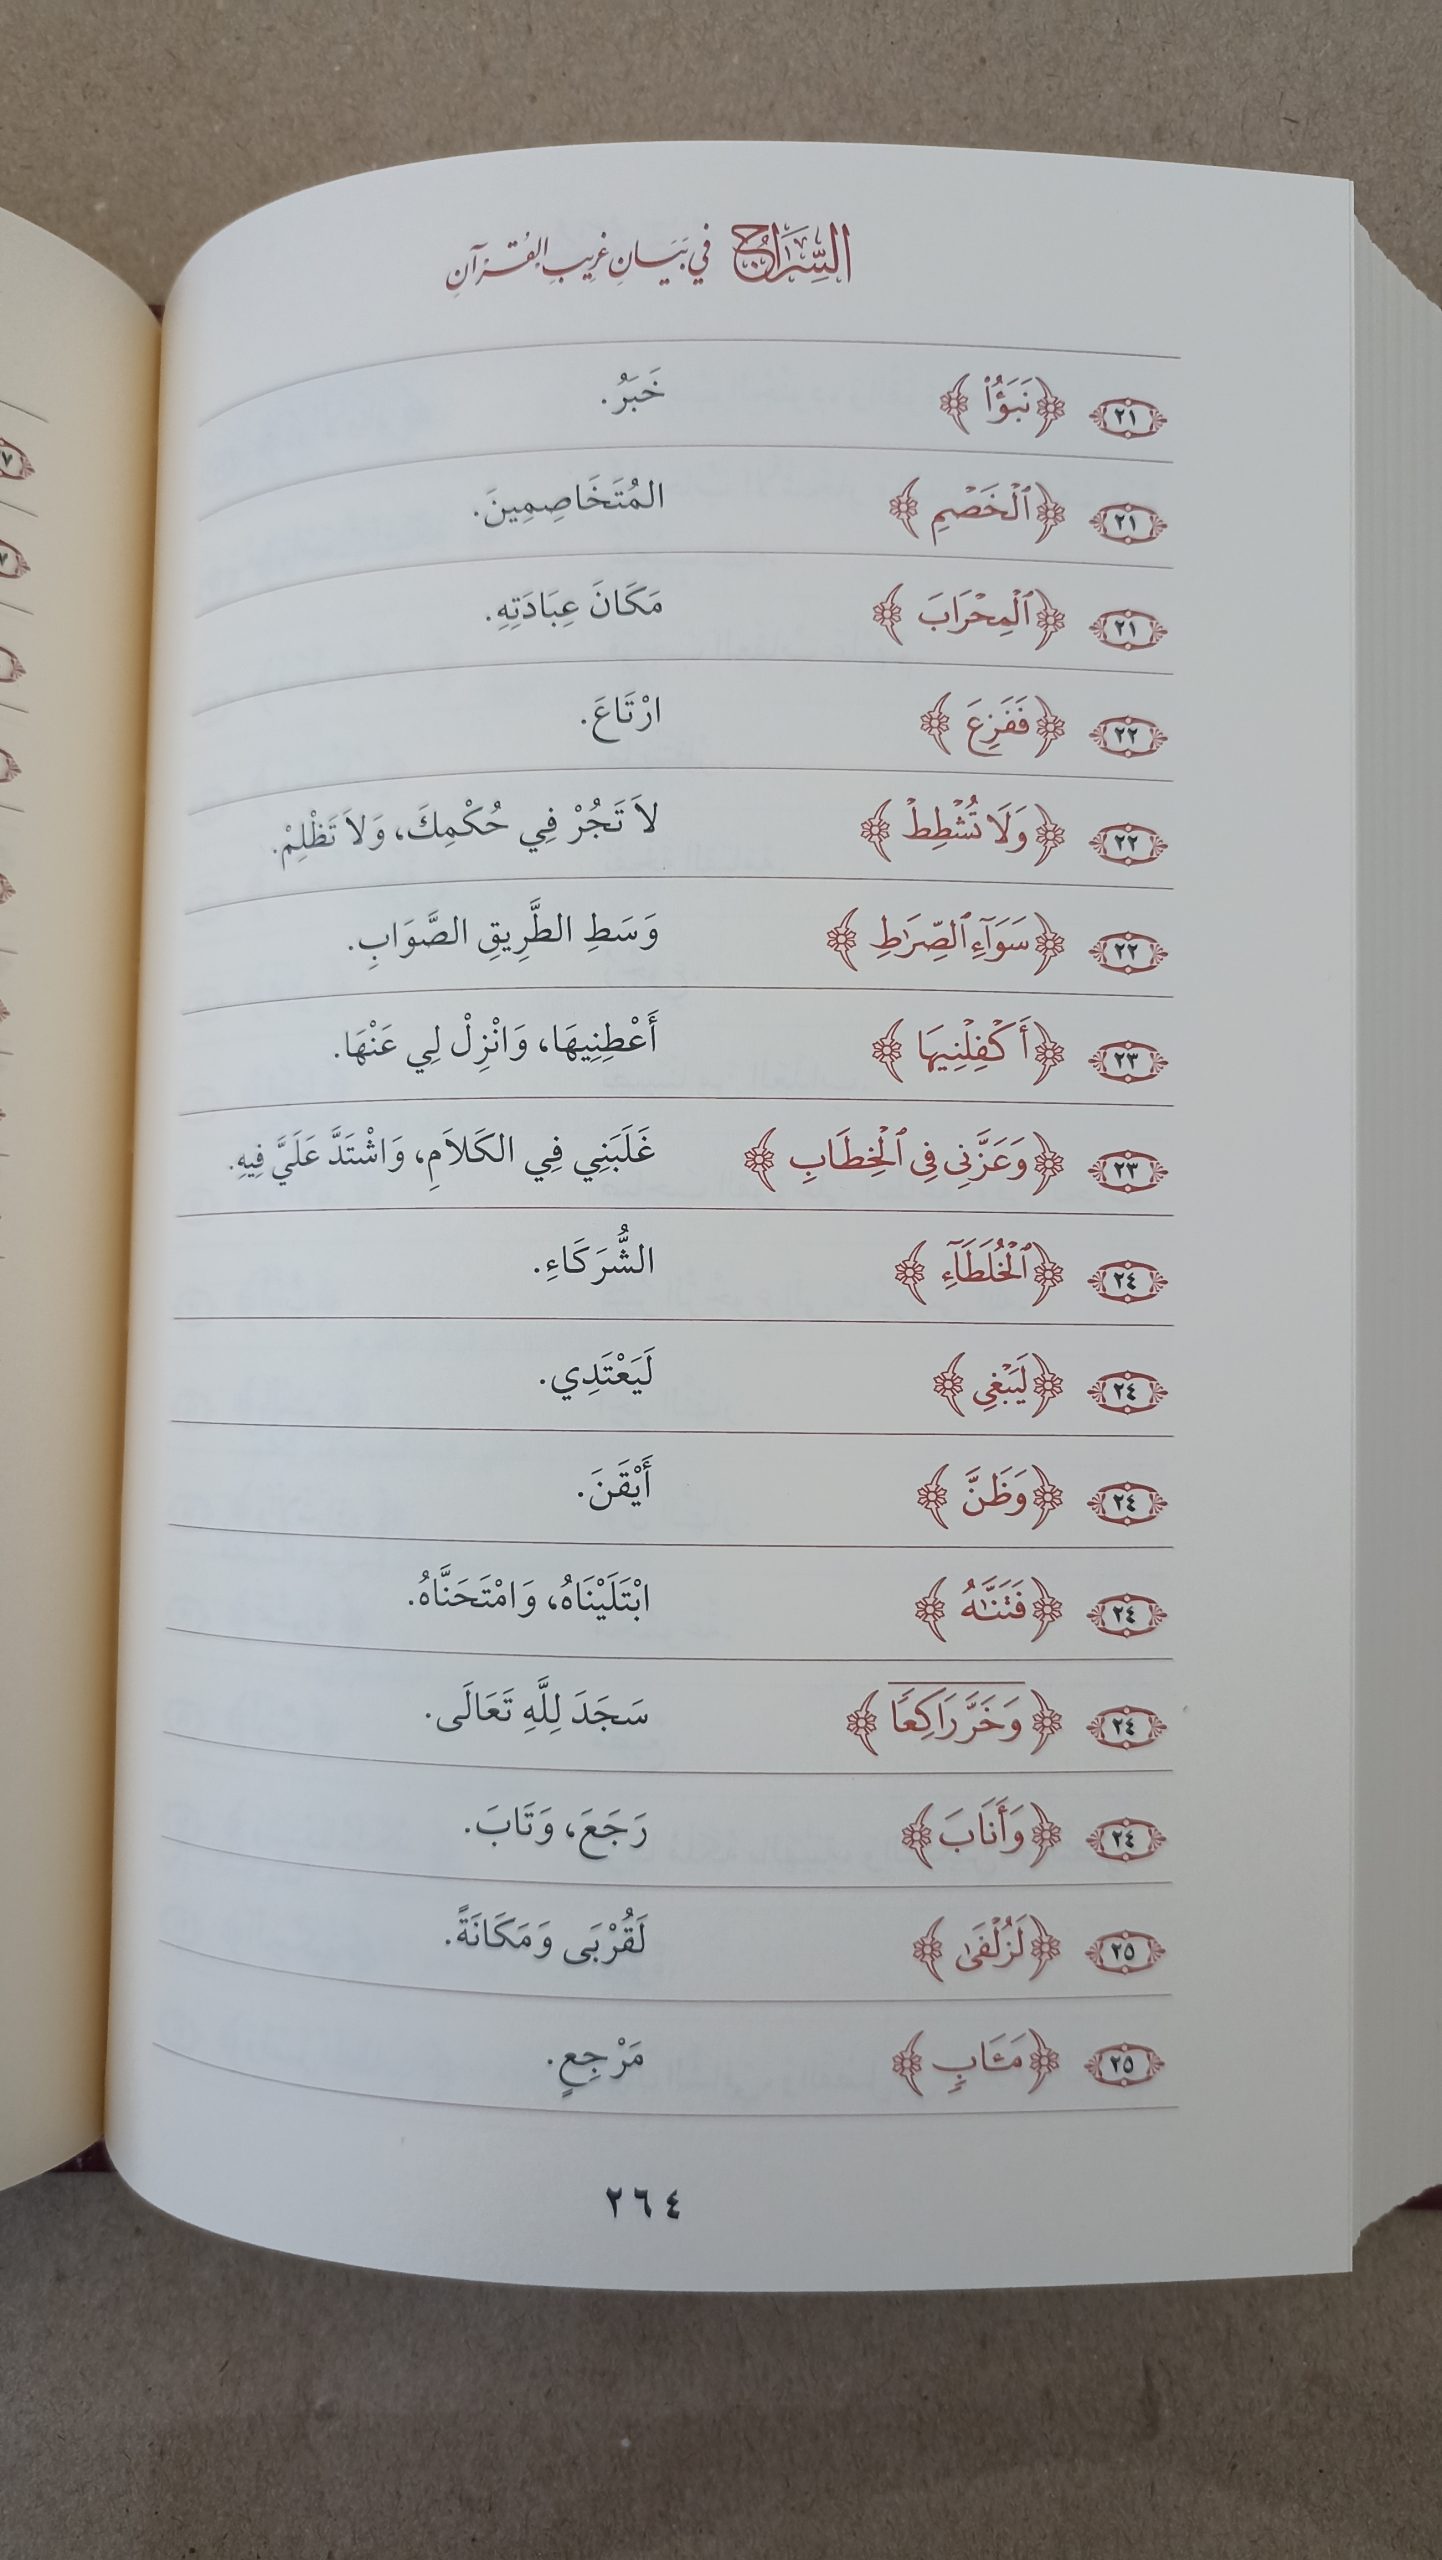 السِّرَاجُ فِي بَيَانِ غَرِيبِ الْقُرْآنِ
٢١ ﴿نَبَؤُاْ﴾ خَبَرُ.
٢١ ﴿ٱلۡخَصۡمِ﴾ المُتَخَاصِمِينَ.
٢١ ﴿ٱلۡمِحۡرَابَ﴾ مَكَانَ عِبَادَتِهِ.
٢٢ ﴿فَفَزِعَ﴾ ارْتَاعَ.
٢٢ ﴿وَلَا تُشۡطِطۡ﴾ لاَ تَجُرْ فِي حُكْمِكَ، وَلاَ تَظْلِمْ.
٢٢ ﴿سَوَآءِ ٱلصِّرَٰطِ﴾ وَسَطِ الطَّرِيقِ الصَّوَابِ.
٢٣ ﴿أَكۡفِلۡنِيهَا﴾ أَعْطِنِيهَا، وَانْزِلْ لِي عَنْهَا.
٢٣ ﴿وَعَزَّنِي فِي ٱلۡخِطَابِ﴾ غَلَبَنِي فِي الكَلاَمِ، وَاشْتَدَّ عَلَيَّ فِيهِ.
٢٤ ﴿ٱلۡخُلَطَآءِ﴾ الشُّرَكَاءِ.
٢٤ ﴿لَيَبۡغِي﴾ لَيَعْتَدِي.
٢٤ ﴿وَظَنَّ﴾ أَيْقَنَ.
٢٤ ﴿فَتَنَّٰهُ﴾ ابْتَلَيْنَاهُ، وَامْتَحَنَّاهُ.
٢٤ ﴿وَخَرَّ رَاكِعٗا﴾ سَجَدَ لِلَّهِ تَعَالَى.
٢٤ ﴿وَأَنَابَ﴾ رَجَعَ، وَتَابَ.
٢٥ ﴿لَزُلۡفَىٰ﴾ لَقُرْبَى وَمَكَانَةً.
٢٥ ﴿مَـَٔابٖ﴾ مَرْجِعٍ.
٢٦٤